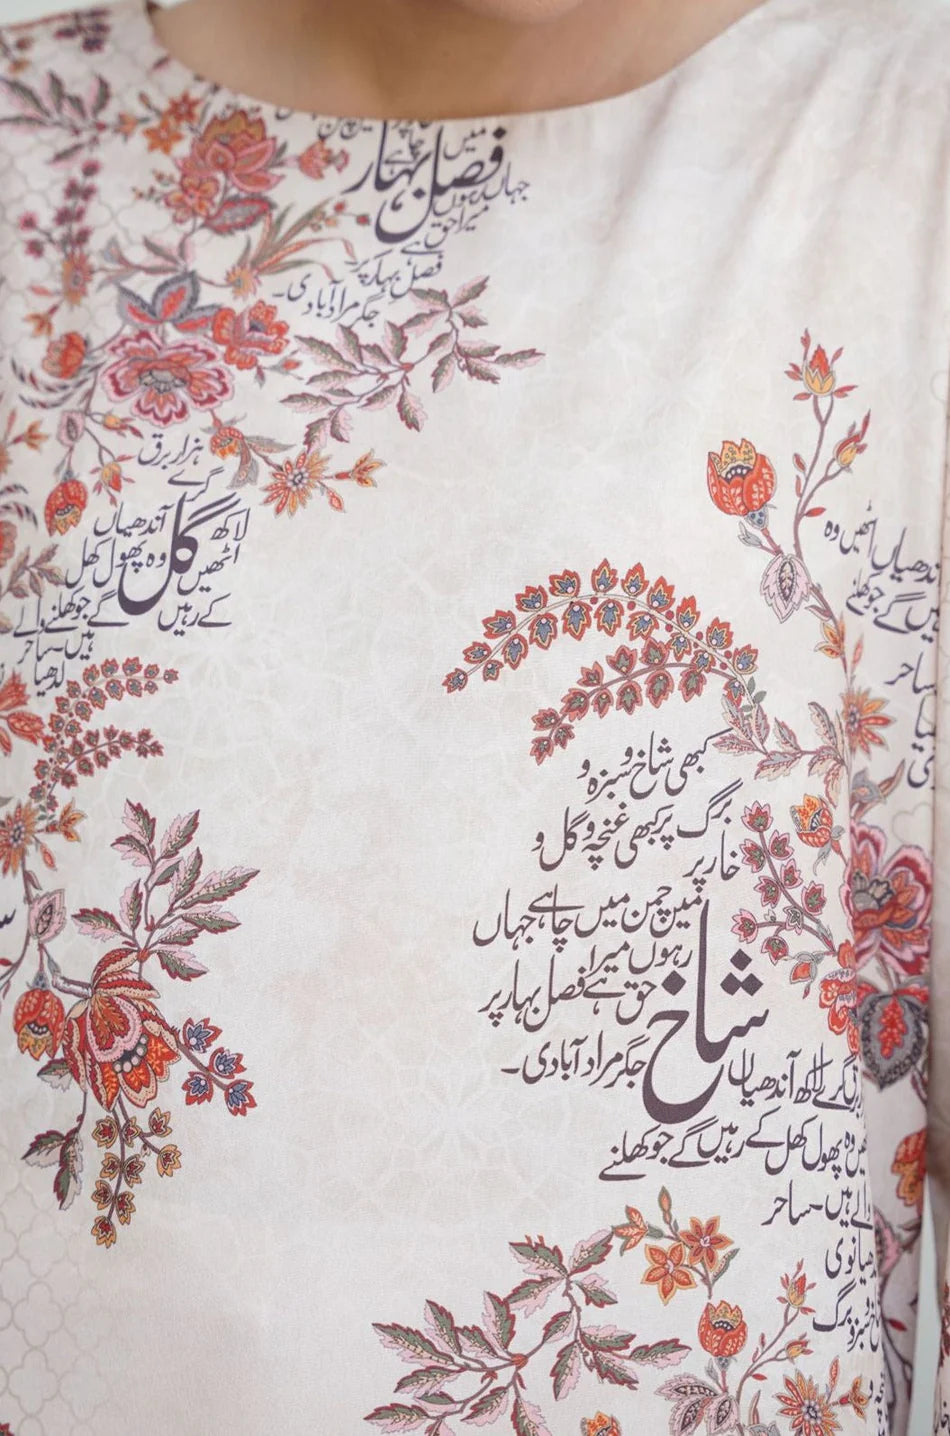 میں
چاہے
فصل بہار
جہاں رہوں
میرا حق ہے
فصل بہار پر
جگر مراد آبادی۔
ہزار برق
گرے
لاکھ آندھیاں
گل
اٹھیں وہ پھول کھل
کے رہیں گے جو کھلنے والے
ہیں۔ ساحر
لدھیا
ندھیاں اٹھیں وہ
ہیں گے جو کھلنے
ساحر
کبھی شاخ و سبزہ و
برگ پر کبھی غنچہ و گل و
خار پر
میں چمن میں چاہے جہاں
رہوں میرا
حق ہے فصل بہار پر
شاخ
جگر مراد آبادی۔
برق گرے لاکھ آندھیاں
وہ پھول کھل کے رہیں گے جو کھلنے
والے ہیں۔ ساحر
لدھیانوی
سبزہ و برگ
و